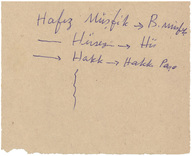 Hafız Müşfik → B. müşfik
— Hüseyin → Hü
→ Hakk → Hakkı Paşa